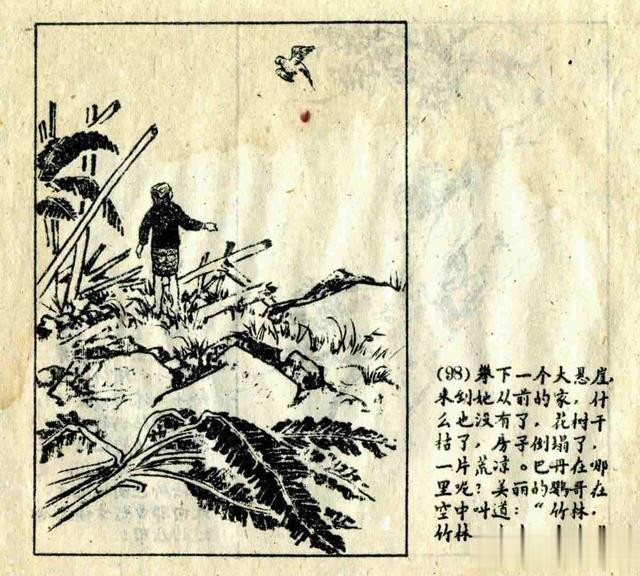 (98) 攀下一个大悬崖,
来到她从前的家,什
么也没有了,花树干
枯了,房子倒塌了,
一片荒凉。巴丹在哪
里呢?美丽的鹦哥在
空中叫道:“竹林,
竹林